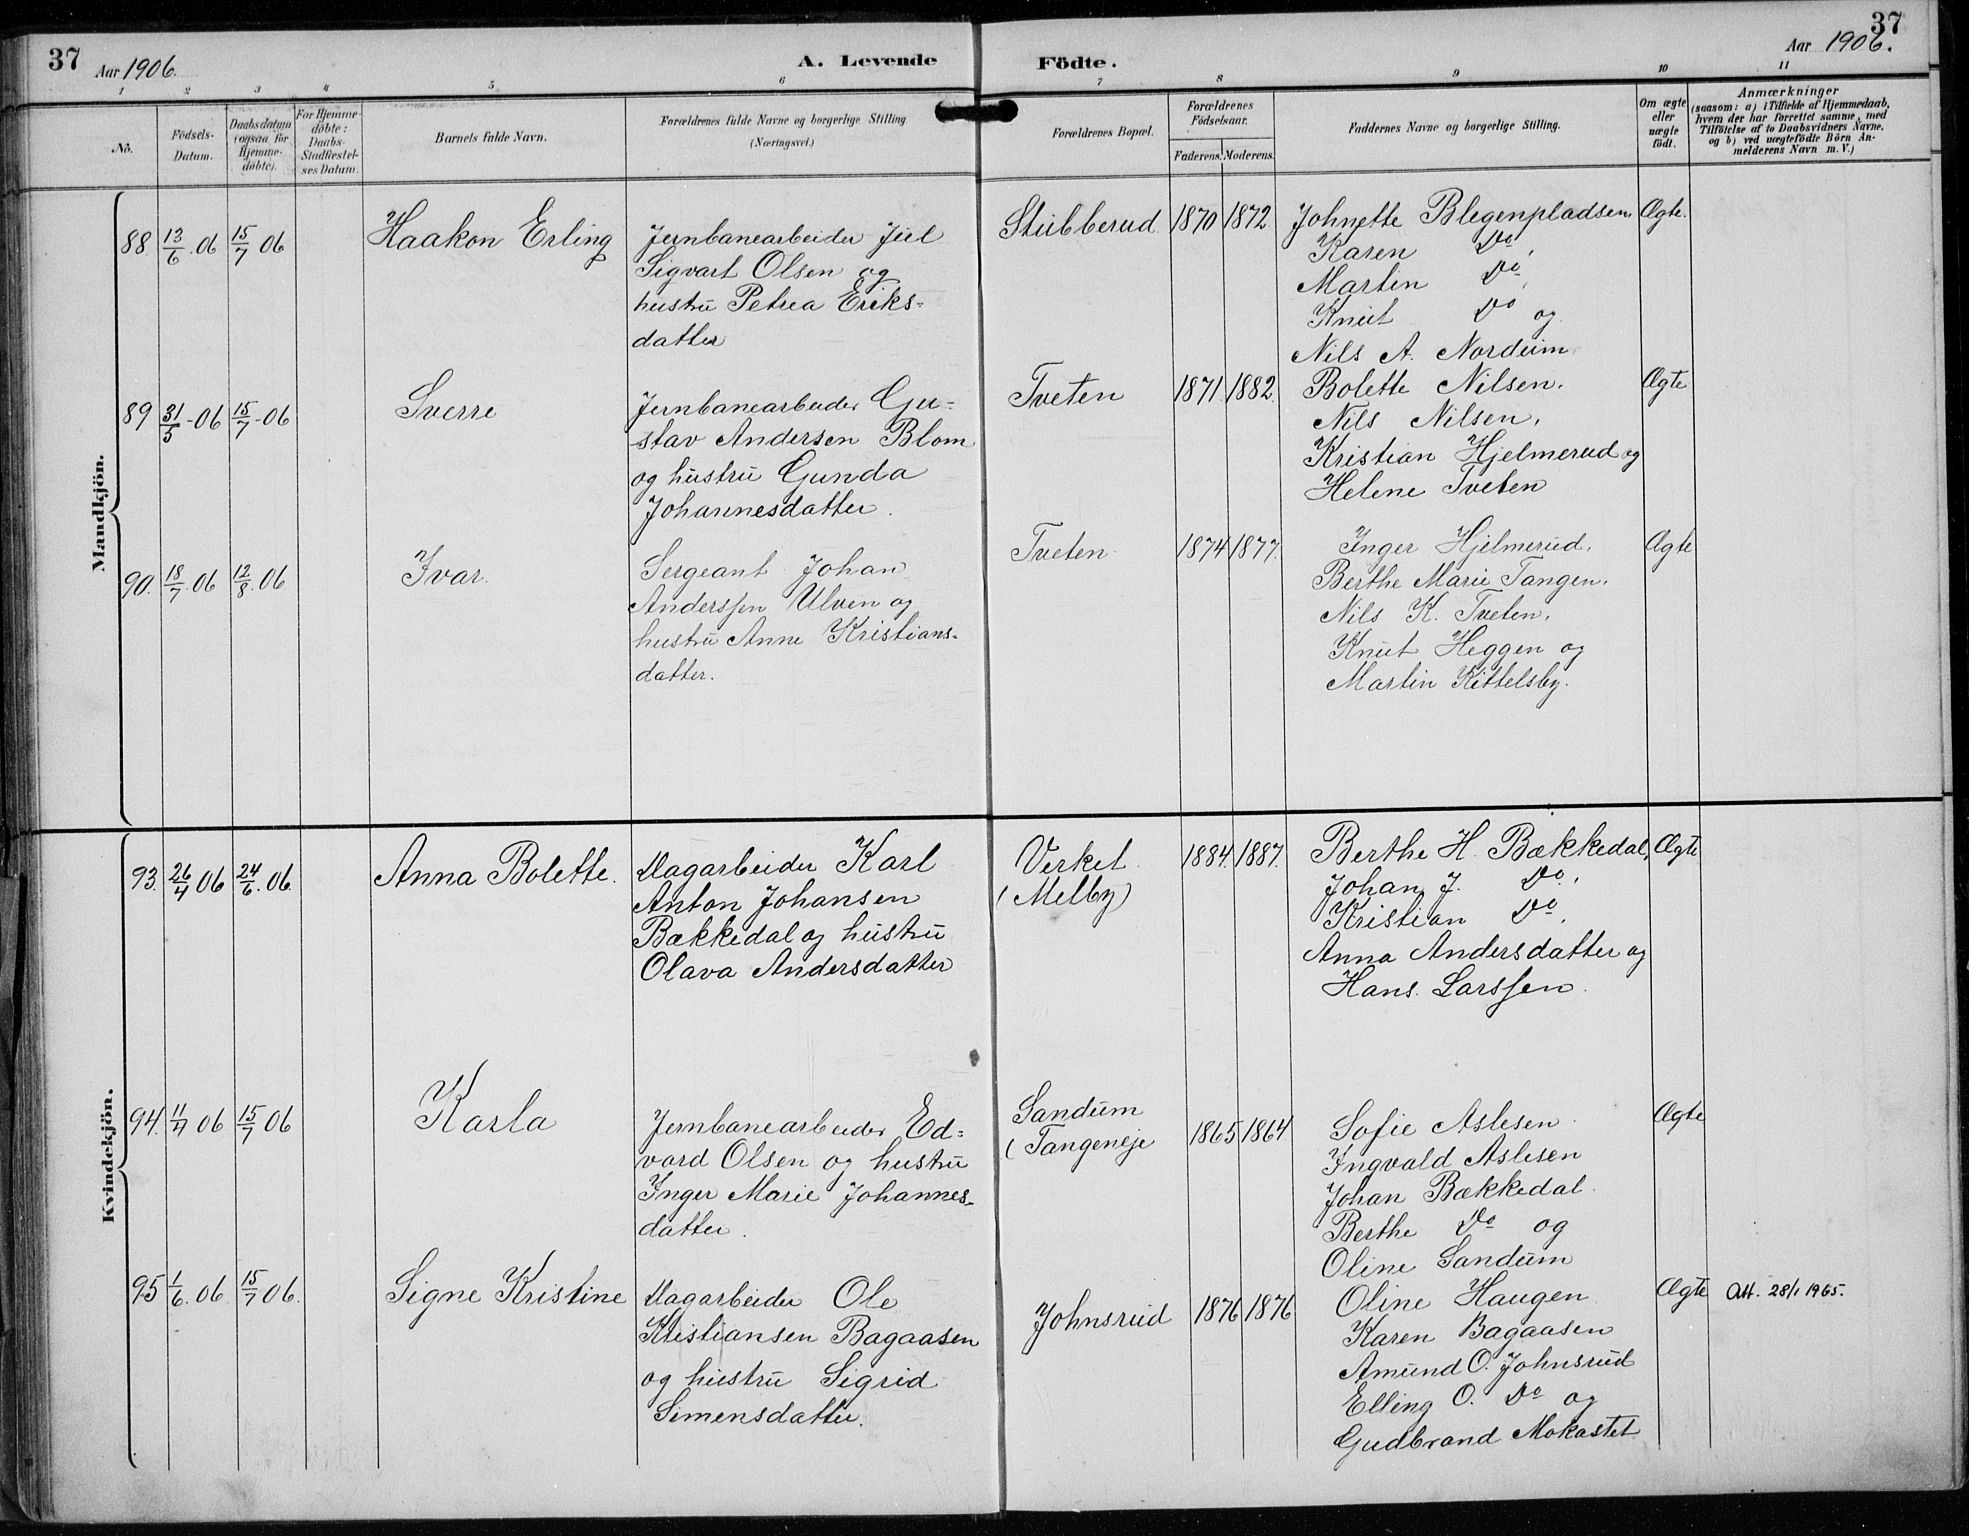 37
Aar 1906.
A. Levende
Födte.
Aar 1906.
37
1 2 3 4 5 6 7 8 9 10 11
No.
Födsels-
Datum.
Daabsdatum
(ogsaa for
Hjemme-
döbte).
For Hjemme-
döbte:
Daabs-
Stadfæstel-
ses Datum.
Barnets fulde Navn.
Forældrenes fulde Navne og borgerlige Stilling
(Næringsvei.)
Forældrenes Bopæl.
Forældrenes
Födselsaar.
Faderens. Moderens.
Faddernes Navne og borgerlige Stilling.
Om ægte
eller
uægte
födt.
Anmærkninger
(saasom: a) i Tilfælde af Hjemmedaab,
hvem der har forrettet samme, med
Tilföielse af to Daabsvidners Navne.
og b) ved uægtefödte Börn An-
melderens Navn m. V.)
Mandkjön.
88 13/6 . 06 15/7 06
Haakon Erling
Jernbanearbeider Juel
Sigvart Olsen og
hustru Petrea Eriks-
datter
Stubberud
1870 1872
Johnette Blegenpladsen,
Karen Do,
Martin Do,
Knut Do og
Nils A. Nordum.
Ægte.
89 31/5 - 06 15/7 - 06
Sverre
Jernbanearbeider Gu-
stav Andersen Blom
og hustru Gunda
Johannesdatter.
Tveten
1871 1882.
Bolette Nilsen.
Nils Nilsen,
Kristian Hjelmerud og
Helene Tveten
Ægte
90. 18/7 . 06 12/8 . 06
Ivar.
Sergeant Johan
Anderssen Ulven og
hustru Anne Kristians-
datter.
Tveten
1874 1877.
Inger Hjelmerud.
Berthe Marie Tangen.
Nils K. Tveten,
Knut Heggen og
Martin Kittelsby.
Ægte
Kvindekjön.
93. 26/4 06 24/6 . 06.
Anna Bolette.
Dagarbeider Karl
Anton Johansen
Bækkedal og hustru
Olava Andersdatter
Verket
(Melby)
1884. 1887.
Berthe H. Bækkedal,
Johan J. Do,
Kristian Do,
Anna Andersdatter og
Hans Larssen.
Ægte
94. 11/4 06 15/7 06
Karla
Jernbanearbeider Ed-
vard Olsen og hustru
Inger Marie Johannes-
datter.
Sandum
(Tangeneje
1865 1864
Sofie Aslesen
Ingvald Aslesen
Johan Bækkedal
Berthe Do og
Oline Sandum
Ægte
95 1/6 . 06 15/7 06.
Signe Kristine
Dagarbeider Ole
Kristiansen Bagaasen
og hustru Sigrid
Simensdatter.
Johnsrud
1876 1876
Oline Haugen
Karen Bagaasen
Amund O. Johnsrud
Elling O. Do og
Gudbrand Mokastet
Ægte
Att. 28/1 1965.